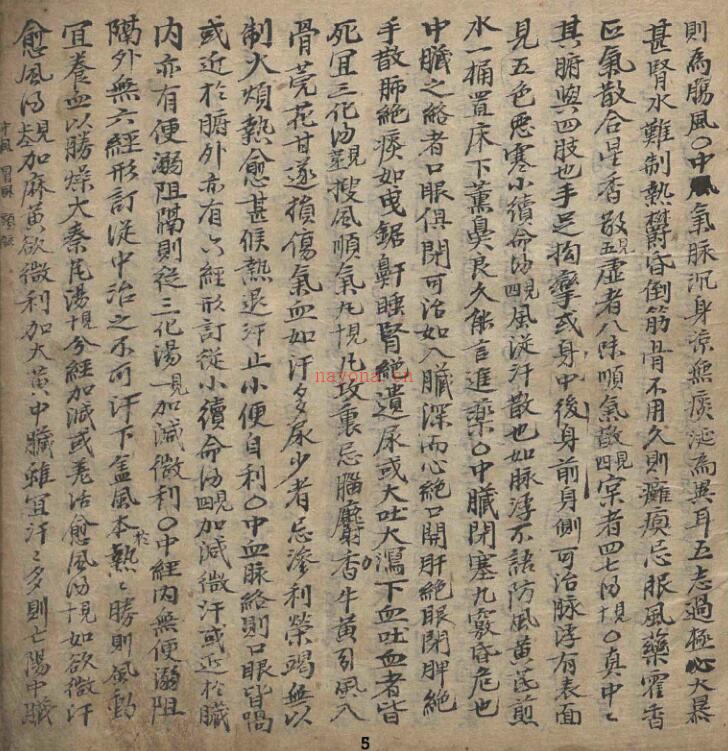 則爲傷風〇中風氣脉沉身涼無痰涎爲異耳五志過極心火暴
甚腎水難制熱欝昏倒筋骨不用久則癱瘓忌服風藥霍香
正氣散合星香散見五虛者八味順氣散見四実者四七湯見十〇真中〻
其腑與四肢也手足拘攣或身中後身前身側可治脉浮有表面
見五色惡寒小續命湯見四風從汗散也如脉浮不語防風黃芪煎
水一桶置床下薰鼻良久能言進藥〇中臟閉塞九竅昏危也
中臟之絡者口眼俱閉可活如入臟深而心絶口開肝絶眼閉脾絶
手散肺絶痰如曳鋸鼻鼾睡腎絶遺尿或大吐大瀉下血吐血者皆
死宜三化湯見搜風順氣丸見十凡攻裏忌腦麝香牛黃引風入
骨芫花甘遂損傷氣血如汗多尿少者忌滲利榮竭無以
制火煩熱愈甚候熱退汗止小便自利〇中血脉絡則口眼皆喎
或近於腑外亦有六經形訂從小續命湯見四加減微汗或近於臟
内亦有便溺阻隔則從三化湯見一加減微利〇中經内無便溺阻
隔外無六經形訂從中治之不可汗下盖風本於熱〻勝則風動
宜養血以勝燥大秦艽湯見十分經加減或羌活愈風湯見十如欲微汗
愈風湯見加麻黃欲微利加大黃中臟雖宜汗〻多則亡陽中臟
中風 冒風
nayona.cn
5